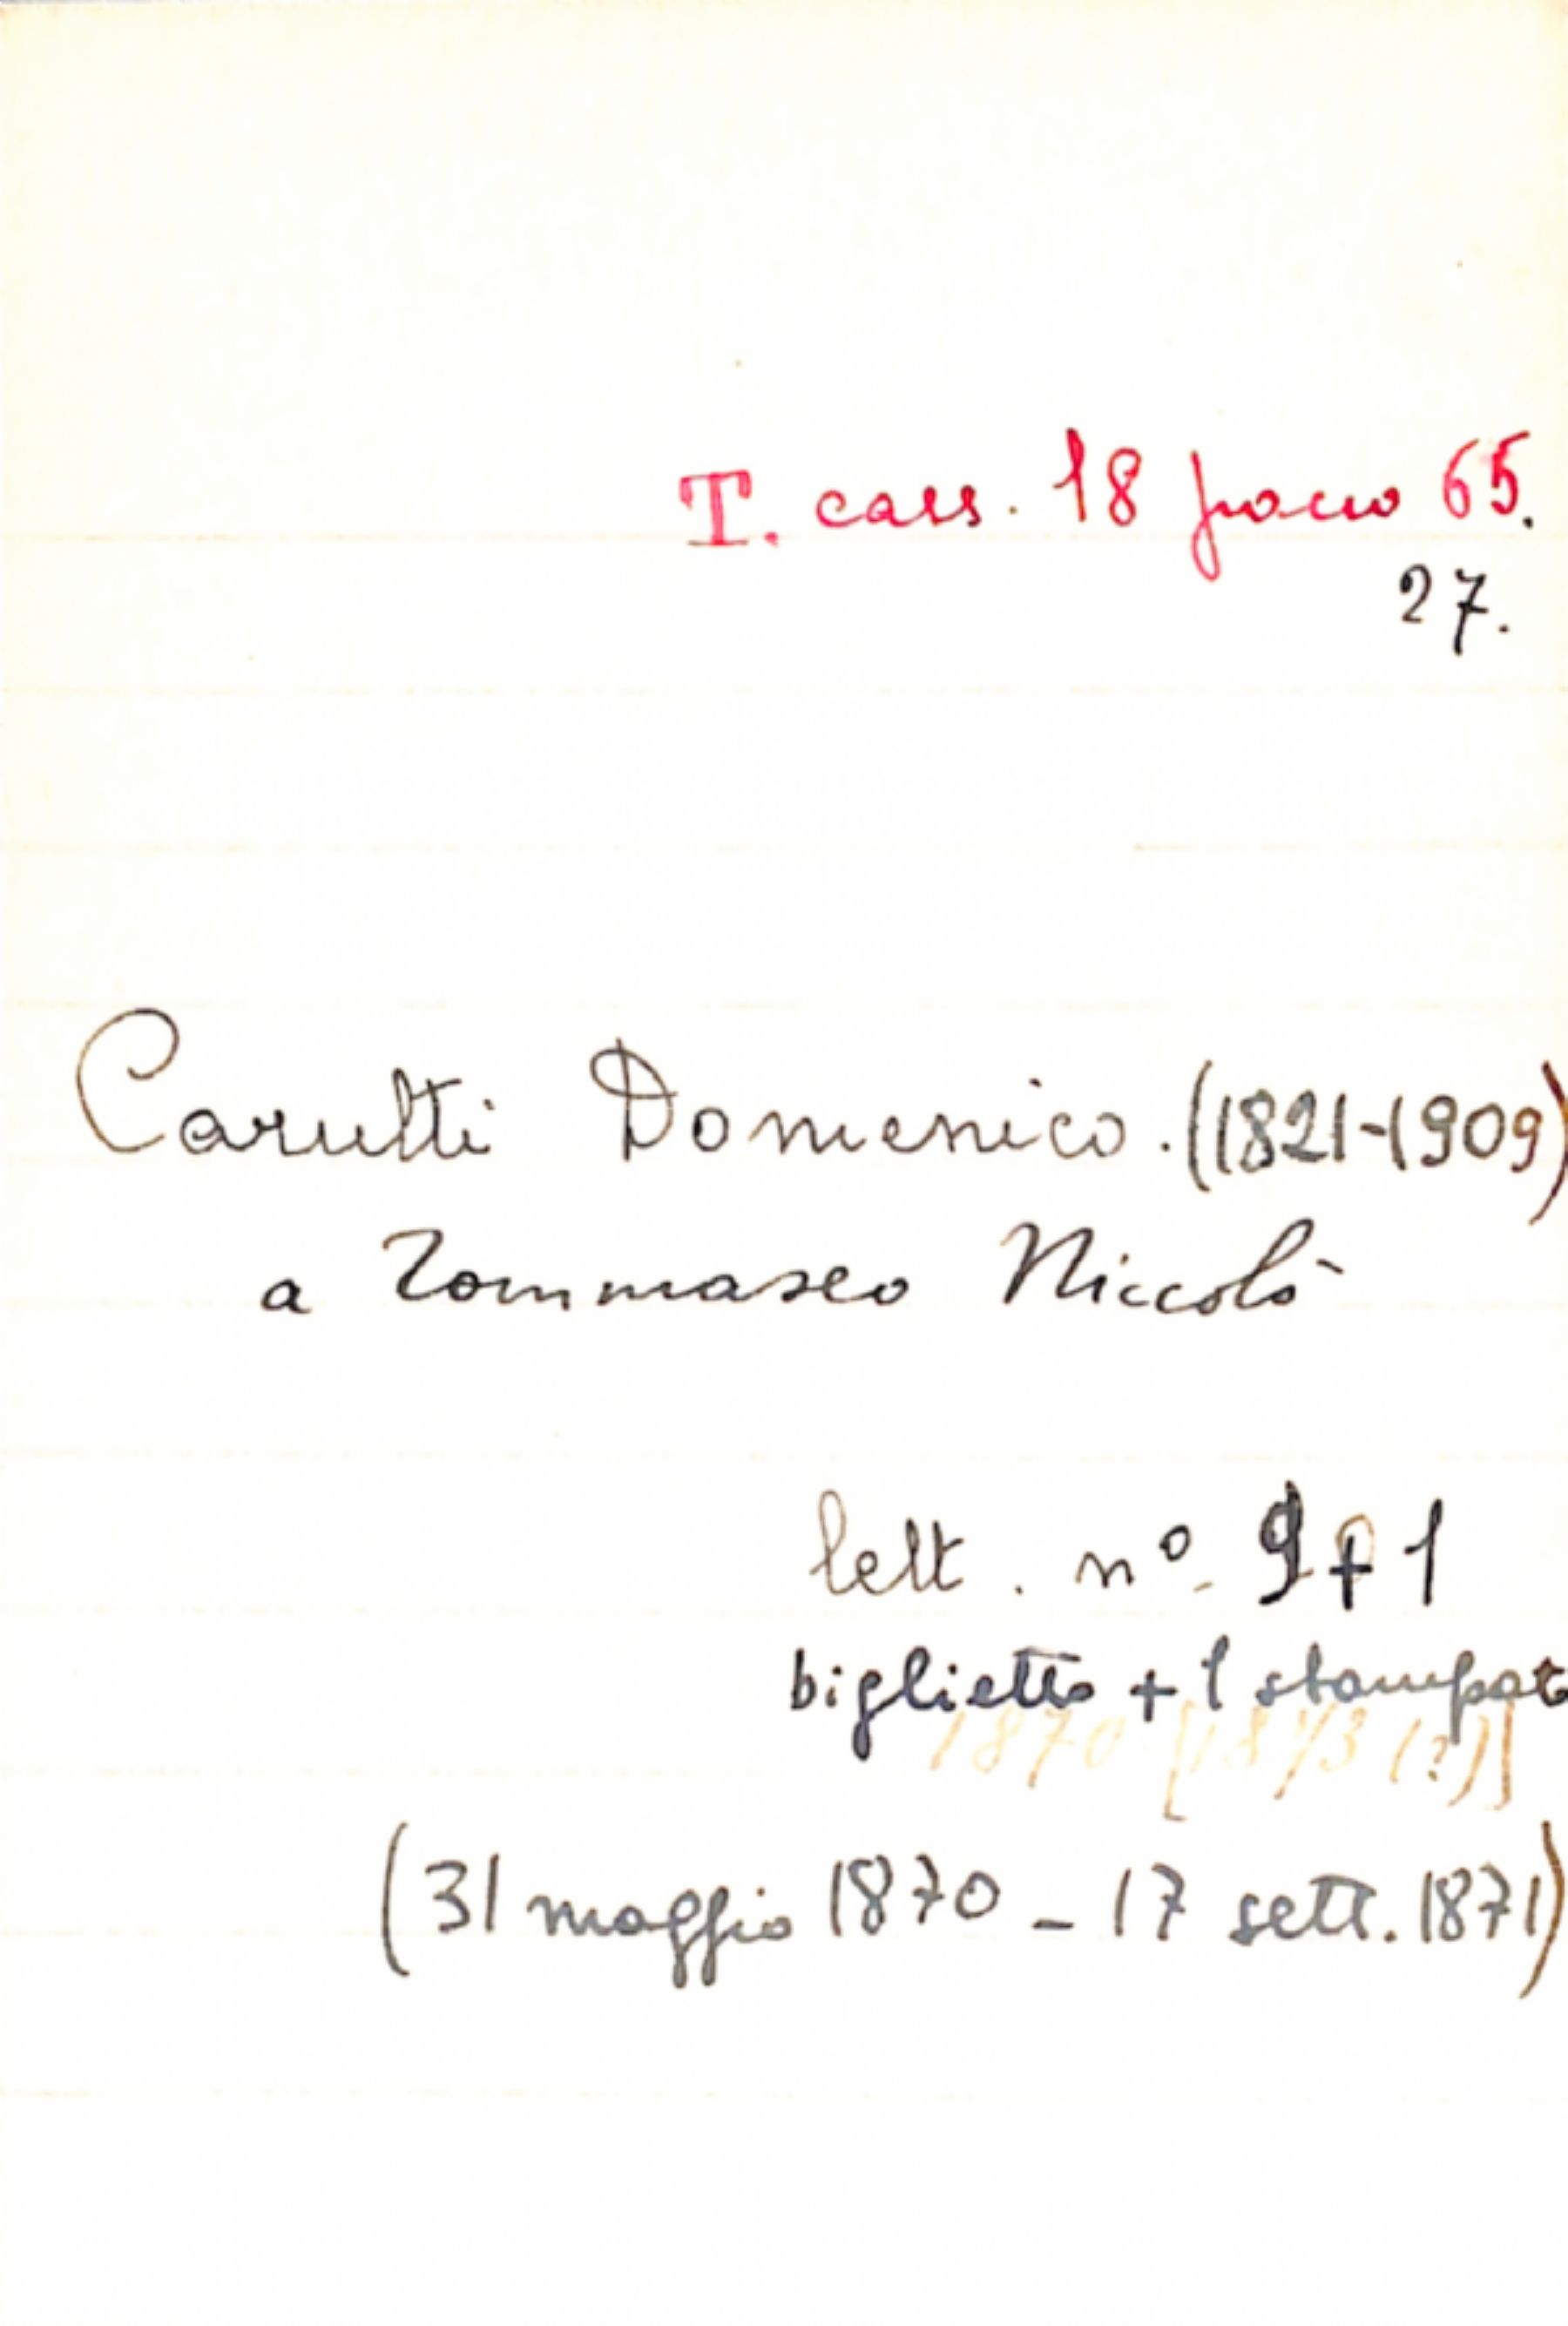 T. cass. 18 pacco 65.
27.
Carutti Domenico. (1821-1909)
a Tommaseo Niccolò
lett. nº. 9+1
biglietto + 1 stampat
1870 [1873 (?)]
(31 maggio 1870 - 17 sett. 1871)